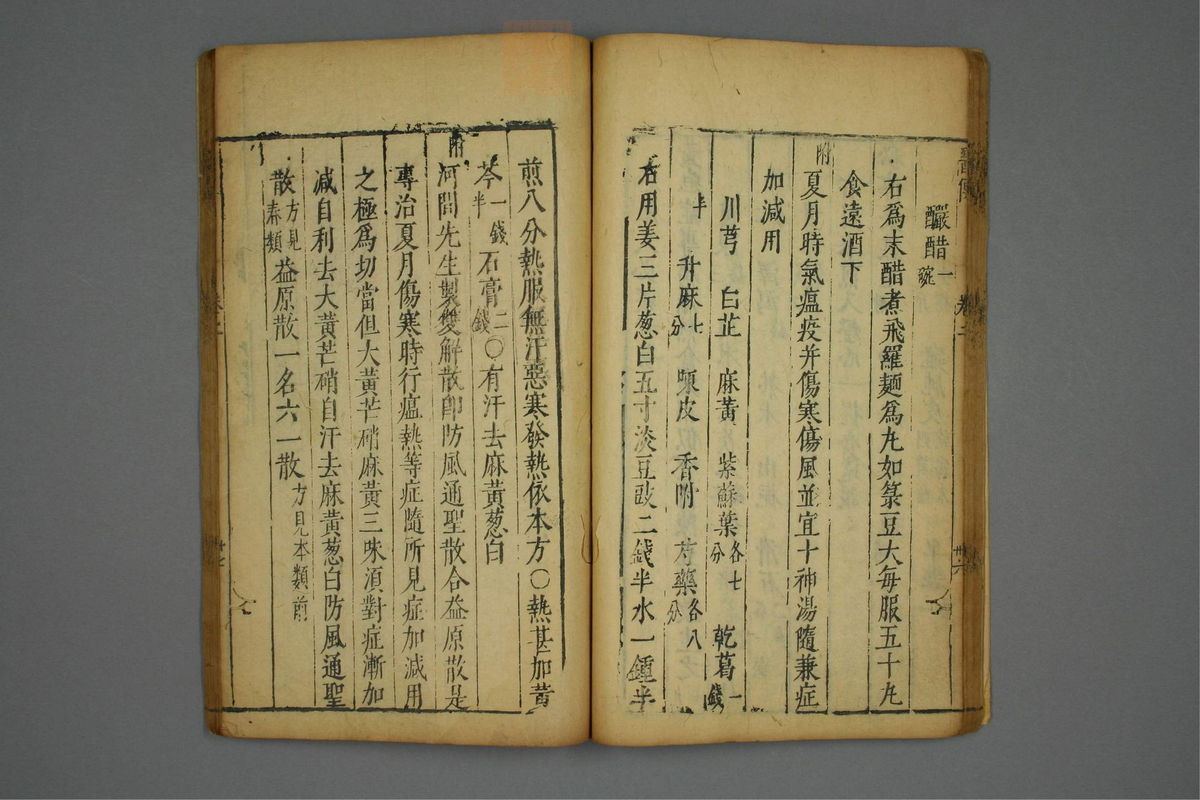 釅醋一碗
右爲末醋煮飛羅麺爲丸如菉豆大每服五十丸
食遠酒下
附夏月時氣瘟疫并傷寒傷風並宜十神湯隨兼症
加減用
川芎 白芷 麻黃 紫蘇葉各七分 乾葛一錢
半 升麻七分 陳皮 香附 芍藥各八分
右用姜三片葱白五寸淡豆豉二錢半水一鍾半
煎八分熱服無汗惡寒發熱依本方〇熱甚加黃
芩一錢半石膏二錢〇有汗去麻黃葱白
附河間先生製雙解散即防風通聖散合益原散是
專治夏月傷寒時行瘟熱等症隨所見症加減用
之極爲切當但大黃芒硝麻黃三味須對症漸加
减自利去大黃芒硝自汗去麻黃葱白防風通聖
散方見春類益原散一名六一散方見本類前
卷二
卅六
卅七